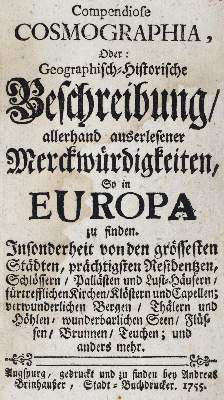 Compendiose
COSMOGRAPHIA,
Oder:
Geographisch-Historische
Beschreibung/
allerhand auserlesener
Merckwürdigkeiten,
So in
EUROPA
zu finden.
Insonderheit von den grössesten
Städten, prächtigsten Residentzen,
Schlössern / Pallästen und Lust-Häusern /
fürtrefflichen Kirchen / Klöstern und Capellen;
verwunderlichen Bergen / Thälern und
Höhlen / wunderbarlichen Seen / Flüs-
sen / Brunnen / Teuchen; und
anders mehr.
Augspurg, gedruckt und zu finden bey Andreas
Brinhausser, Stadt-Buchdrucker. 1755.